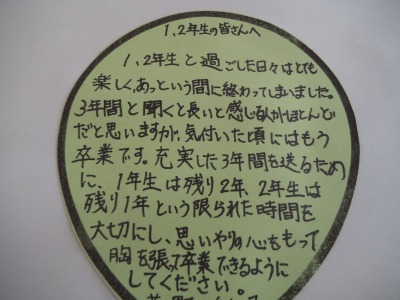 1、2年生の皆さんへ
1、2年生と過ごした日々はとても
楽しく、あっという間に終わってしまいました。
3年間と聞くと長いと感じる人がほとんど
だと思いますが、気付いた頃にはもう
卒業です。充実した3年間を送るため
に、1年生は残り2年、2年生は
残り1年という限られた時間を
大切にし、思いやりの心をもって
胸を張って卒業できるように
してください。